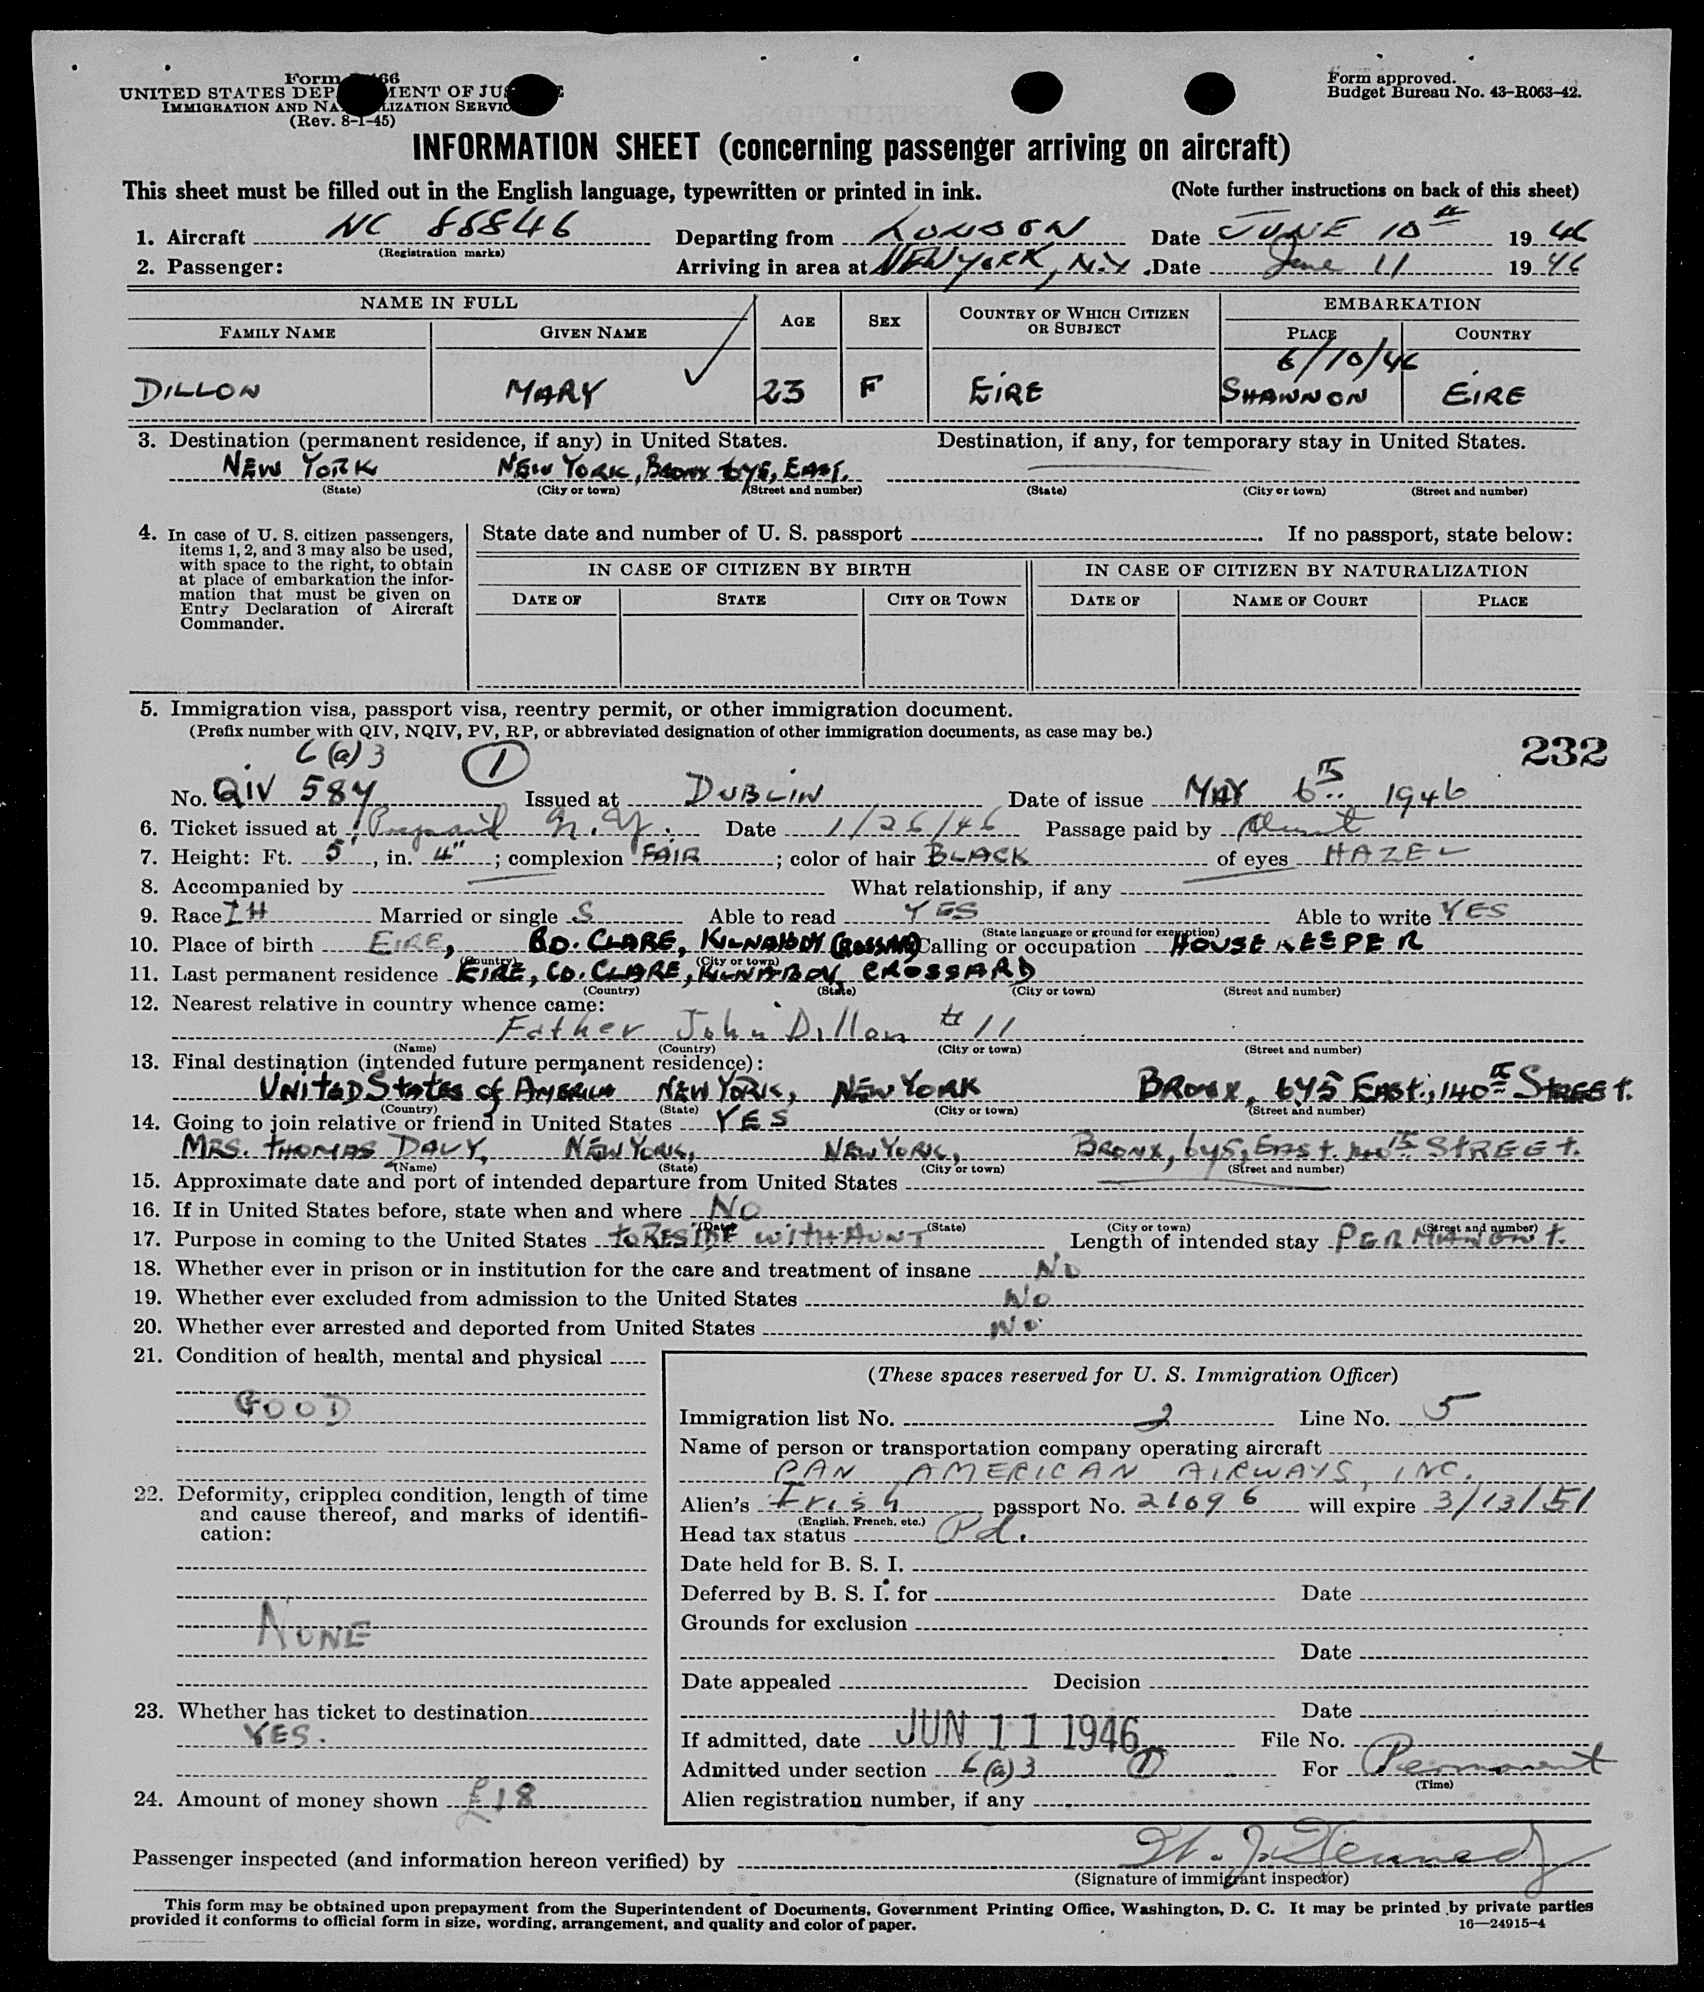 Form 66
UNITED STATES DEP MENT OF JUS E
IMMIGRATION AND NA LIZATION SERVIC
(Rev. 8-1-45)
Form approved.
Budget Bureau No. 43-R063-42.
INFORMATION SHEET (concerning passenger arriving on aircraft)
This sheet must be filled out in the English language, typewritten or printed in ink. (Note further instructions on back of this sheet)
1. Aircraft NC 88846 Departing from LONDON Date JUNE 10th 1946
(Registration marks)
2. Passenger: Arriving in area at NEW YORK, N.Y. Date June 11 1946
NAME IN FULL AGE SEX COUNTRY OF WHICH CITIZEN OR SUBJECT EMBARKATION
FAMILY NAME GIVEN NAME PLACE COUNTRY
6/10/46
DILLON MARY 23 F EIRE SHANNON EIRE
3. Destination (permanent residence, if any) in United States. Destination, if any, for temporary stay in United States.
NEW YORK NEW YORK, BRONX 645, EAST.
(State) (City or town) (Street and number) (State) (City or town) (Street and number)
4. In case of U. S. citizen passengers, items 1, 2, and 3 may also be used, with space to the right, to obtain at place of embarkation the information that must be given on Entry Declaration of Aircraft Commander.
State date and number of U. S. passport If no passport, state below:
IN CASE OF CITIZEN BY BIRTH IN CASE OF CITIZEN BY NATURALIZATION
DATE OF STATE CITY OR TOWN DATE OF NAME OF COURT PLACE
5. Immigration visa, passport visa, reentry permit, or other immigration document.
(Prefix number with QIV, NQIV, PV, RP, or abbreviated designation of other immigration documents, as case may be.)
232
6(a)3 1
No. QIV 584 Issued at DUBLIN Date of issue MAY 6th 1946
6. Ticket issued at Prepaid N.Y. Date 1/26/46 Passage paid by Aunt
7. Height: Ft. 5', in. 4"; complexion FAIR; color of hair BLACK of eyes HAZEL
8. Accompanied by What relationship, if any
9. Race IH Married or single S Able to read YES Able to write YES
(State language or ground for exemption)
10. Place of birth EIRE, CO. CLARE, KILNABOY CROSSARD Calling or occupation HOUSEKEEPER
(Country) (City or town)
11. Last permanent residence EIRE, CO. CLARE, KILNABOY, CROSSARD
(Country) (State) (City or town) (Street and number)
12. Nearest relative in country whence came:
Father John Dillon #11
(Name) (Country) (City or town) (Street and number)
13. Final destination (intended future permanent residence):
UNITED STATES of AMERICA NEW YORK, NEW YORK BRONX, 645 EAST., 140th STREET.
(Country) (State) (City or town) (Street and number)
14. Going to join relative or friend in United States YES
MRS. THOMAS DAVY, NEW YORK, NEW YORK, BRONX, 645, EAST. 140th STREET.
(Name) (State) (City or town) (Street and number)
15. Approximate date and port of intended departure from United States
16. If in United States before, state when and where NO
(Date) (State) (City or town) (Street and number)
17. Purpose in coming to the United States TO RESIDE WITH AUNT Length of intended stay PERMANENT.
18. Whether ever in prison or in institution for the care and treatment of insane NO
19. Whether ever excluded from admission to the United States NO
20. Whether ever arrested and deported from United States NO
21. Condition of health, mental and physical
GOOD
22. Deformity, crippled condition, length of time and cause thereof, and marks of identification:
NONE
23. Whether has ticket to destination
YES.
24. Amount of money shown £18
(These spaces reserved for U. S. Immigration Officer)
Immigration list No. 2 Line No. 5
Name of person or transportation company operating aircraft
PAN AMERICAN AIRWAYS, INC.
Alien's Irish passport No. 21096 will expire 3/13/51
(English, French, etc.)
Head tax status Pd.
Date held for B. S. I.
Deferred by B. S. I. for Date
Grounds for exclusion
Date
Date appealed Decision
Date
If admitted, date JUN 11 1946 File No.
Admitted under section 6(a)3 1 For Permanent
(Time)
Alien registration number, if any
Passenger inspected (and information hereon verified) by W. J. Kennedy
(Signature of immigrant inspector)
This form may be obtained upon prepayment from the Superintendent of Documents, Government Printing Office, Washington, D. C. It may be printed by private parties
provided it conforms to official form in size, wording, arrangement, and quality and color of paper. 16—24915-4